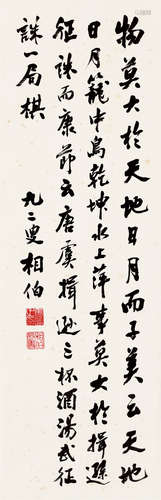 物莫大於天地日月而子美云天地
日月籠中鳥乾坤水上萍事莫大於揖遜
征誅而康節云唐虞揖遜三杯酒湯武征
誅一局棋
九二叟相伯